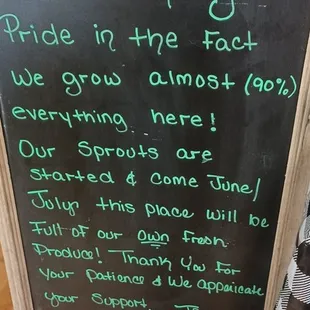 Pride in the Fact
We grow almost (90%)
everything here!
Our Sprouts are
started & come June/
July this place will be
full of our own Fresh
Produce! Thank You For
Your Patience & We Appaicate
your Support.